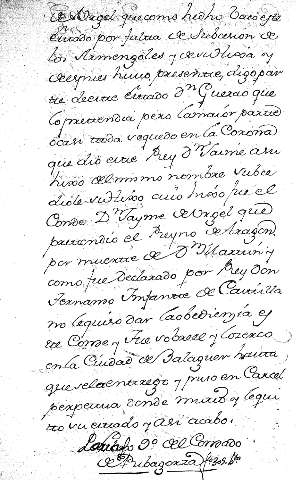 de Urgel que como hecho Vacó este
estado por falta de Subcesion de
los Armengoles y de su linea y
despues huvo, presentes, digo par
te de este estado Dn Guerao que
lo pretendia pero la maior parte
casi toda se quedo en la Corona
que dió este Rey Dn Jaime a su
hixo del mismo nombre subce
diole su hixo cuio hixo fue el
Conde Dn Jayme de Urgel que
pretendio el Reyno de Aragon
por muerte de Dn Martin y
como fue declarado por Rey Don
Fernando Infante de Castilla
no le quiso dar la obediencia es
te Conde y Fue sobre el y lo cerco
en la Ciudad de Balaguer hasta
que se le entregó y puso en Carcel
perpetua donde murió y le qui
to su estado y asi acabo.
del Condado
de Ribagorza